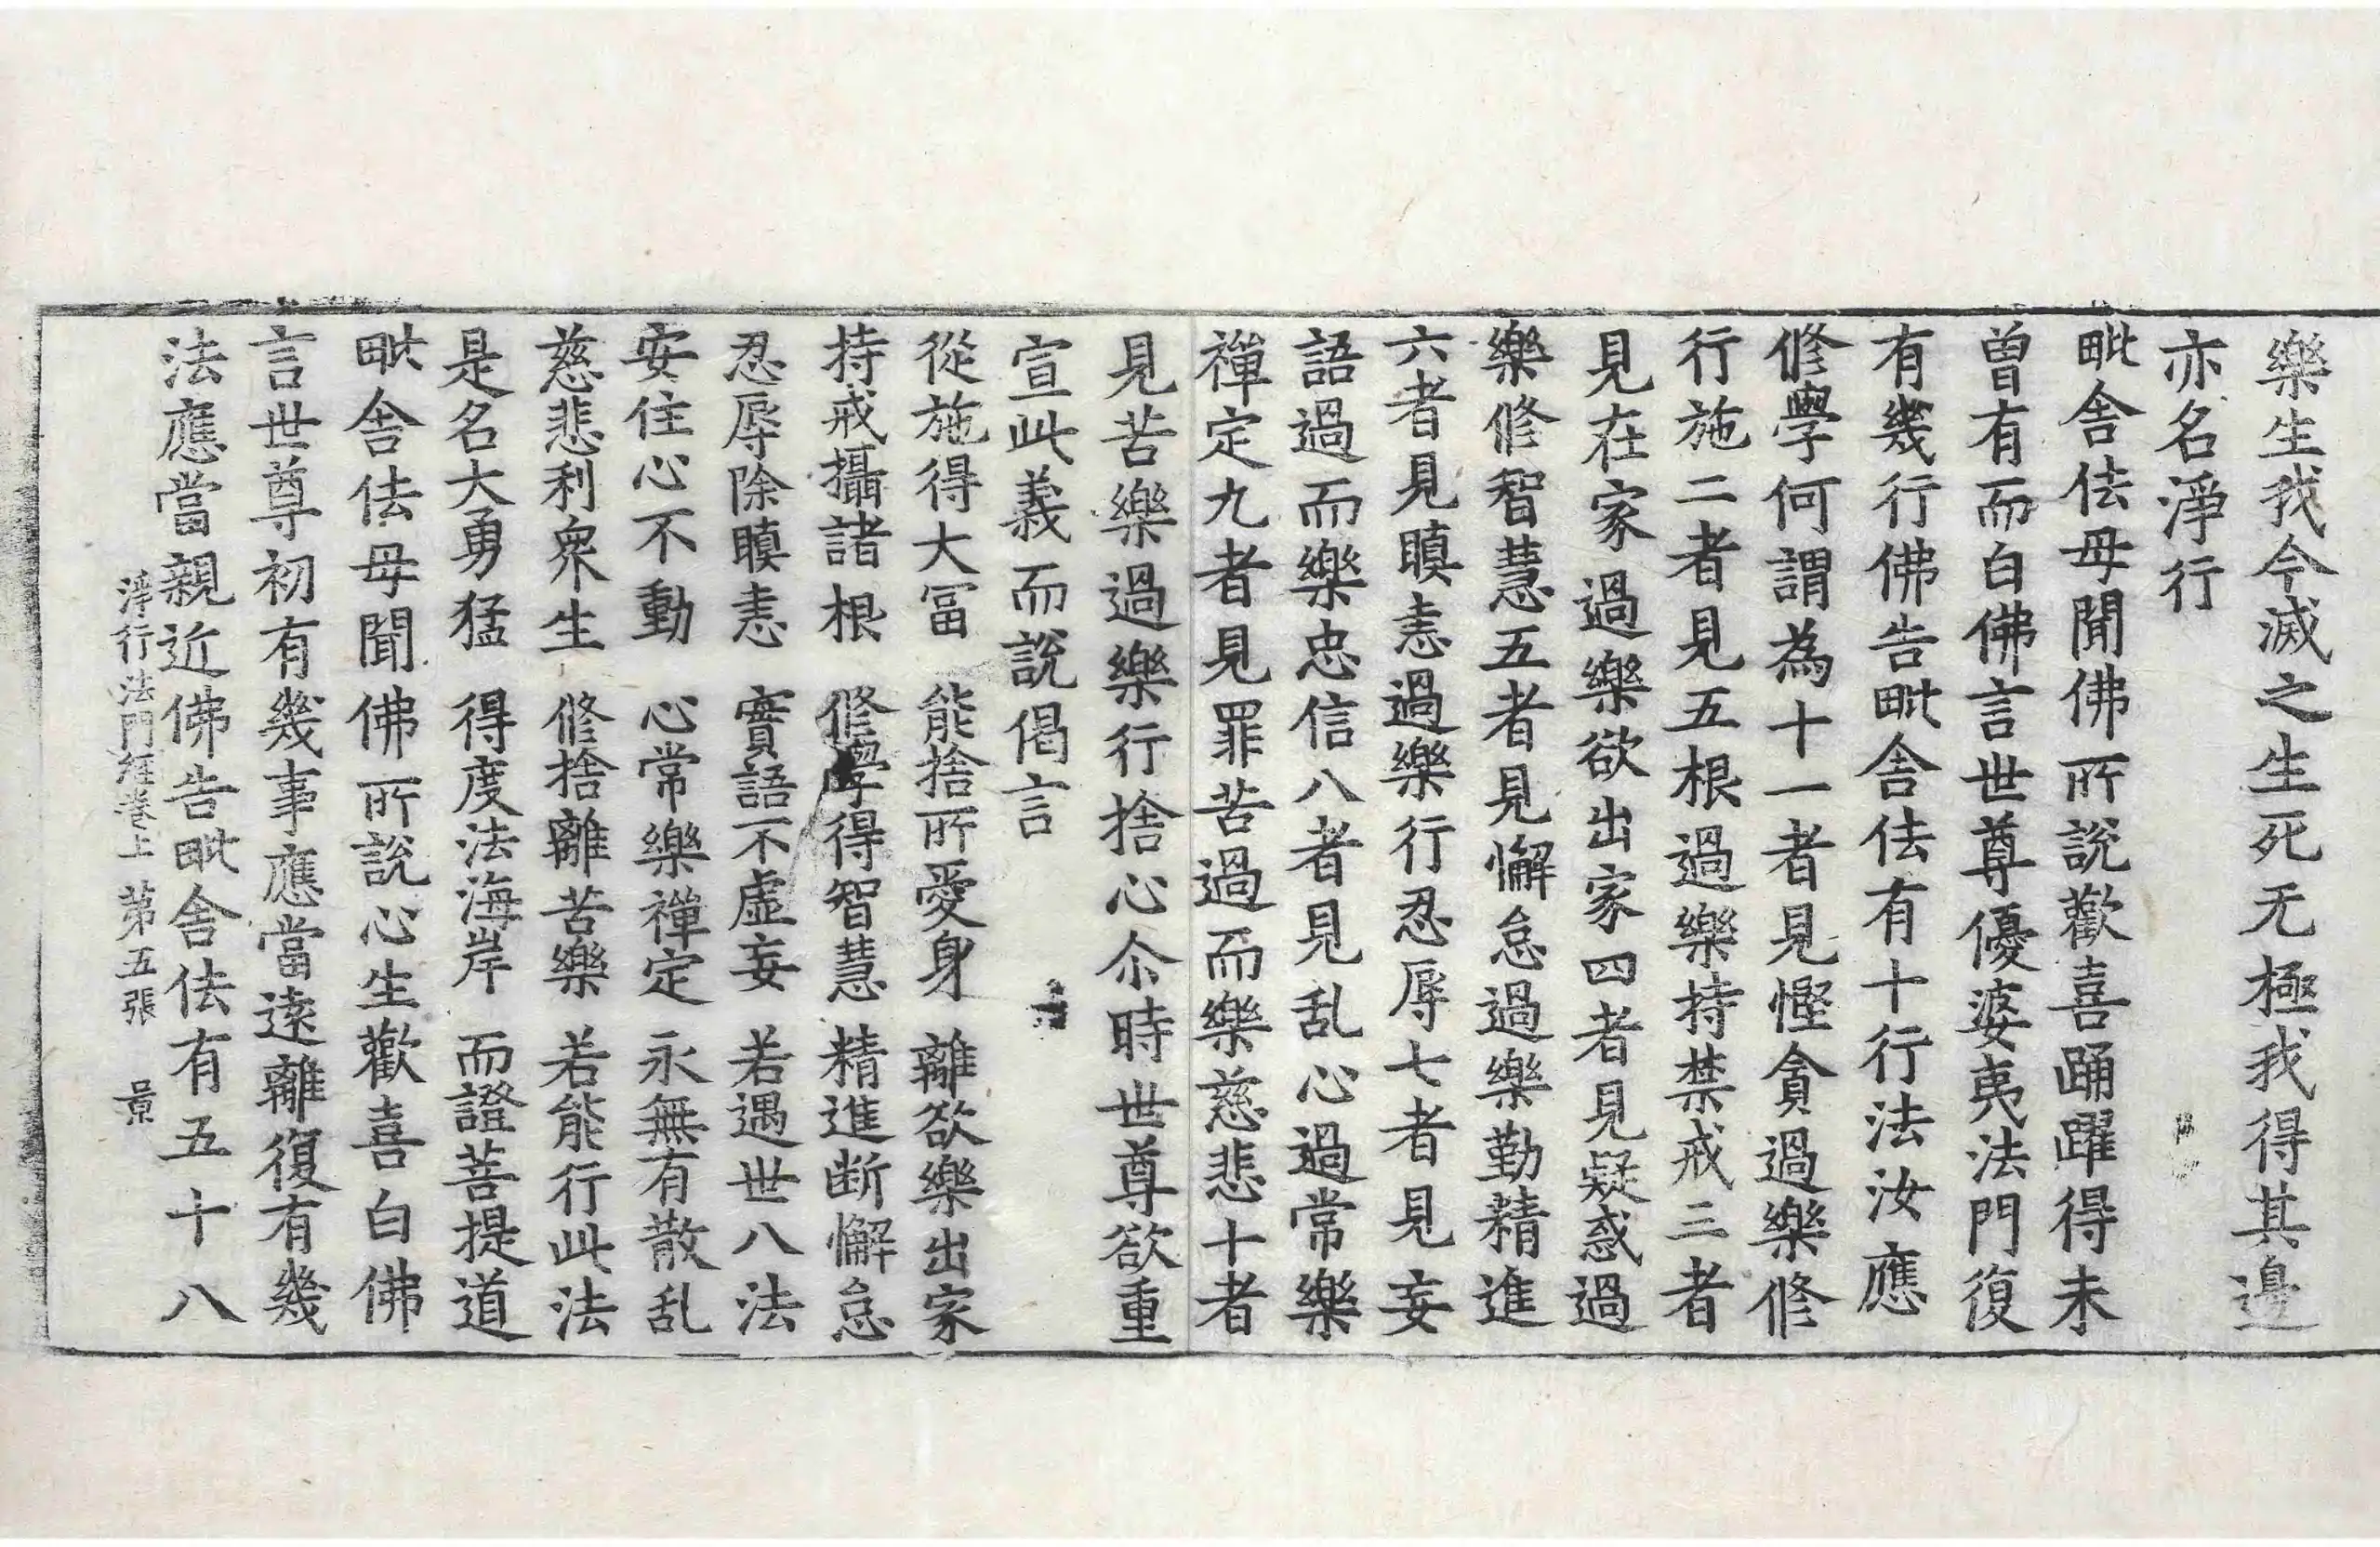 樂生我今滅之生死无極我得其邊
亦名淨行
毗舍佉母聞佛所說歡喜踊躍得未
曾有而白佛言世尊優婆夷法門復
有幾行佛告毗舍佉有十行法汝應
修學何謂為十一者見慳貪過樂修
行施二者見五根過樂持禁戒三者
見在家過樂欲出家四者見疑惑過
樂修智慧五者見懈怠過樂勤精進
六者見瞋恚過樂行忍辱七者見妄
語過而樂忠信八者見乱心過常樂
禪定九者見罪苦過而樂慈悲十者
見苦樂過樂行捨心尒時世尊欲重
宣此義而說偈言
從施得大冨　能捨所愛身　離欲樂出家
持戒攝諸根　修學得智慧　精進断懈怠
忍辱除瞋恚　實語不虛妄　若遇世八法
安住心不動　心常樂禪定　永無有散乱
慈悲利衆生　修捨離苦樂　若能行此法
是名大勇猛　得度法海岸　而證菩提道
毗舍佉母聞佛所說心生歡喜白佛
言世尊初有幾事應當遠離復有幾
法應當親近佛告毗舍佉有五十八
淨行法門經卷上　苐五張　景